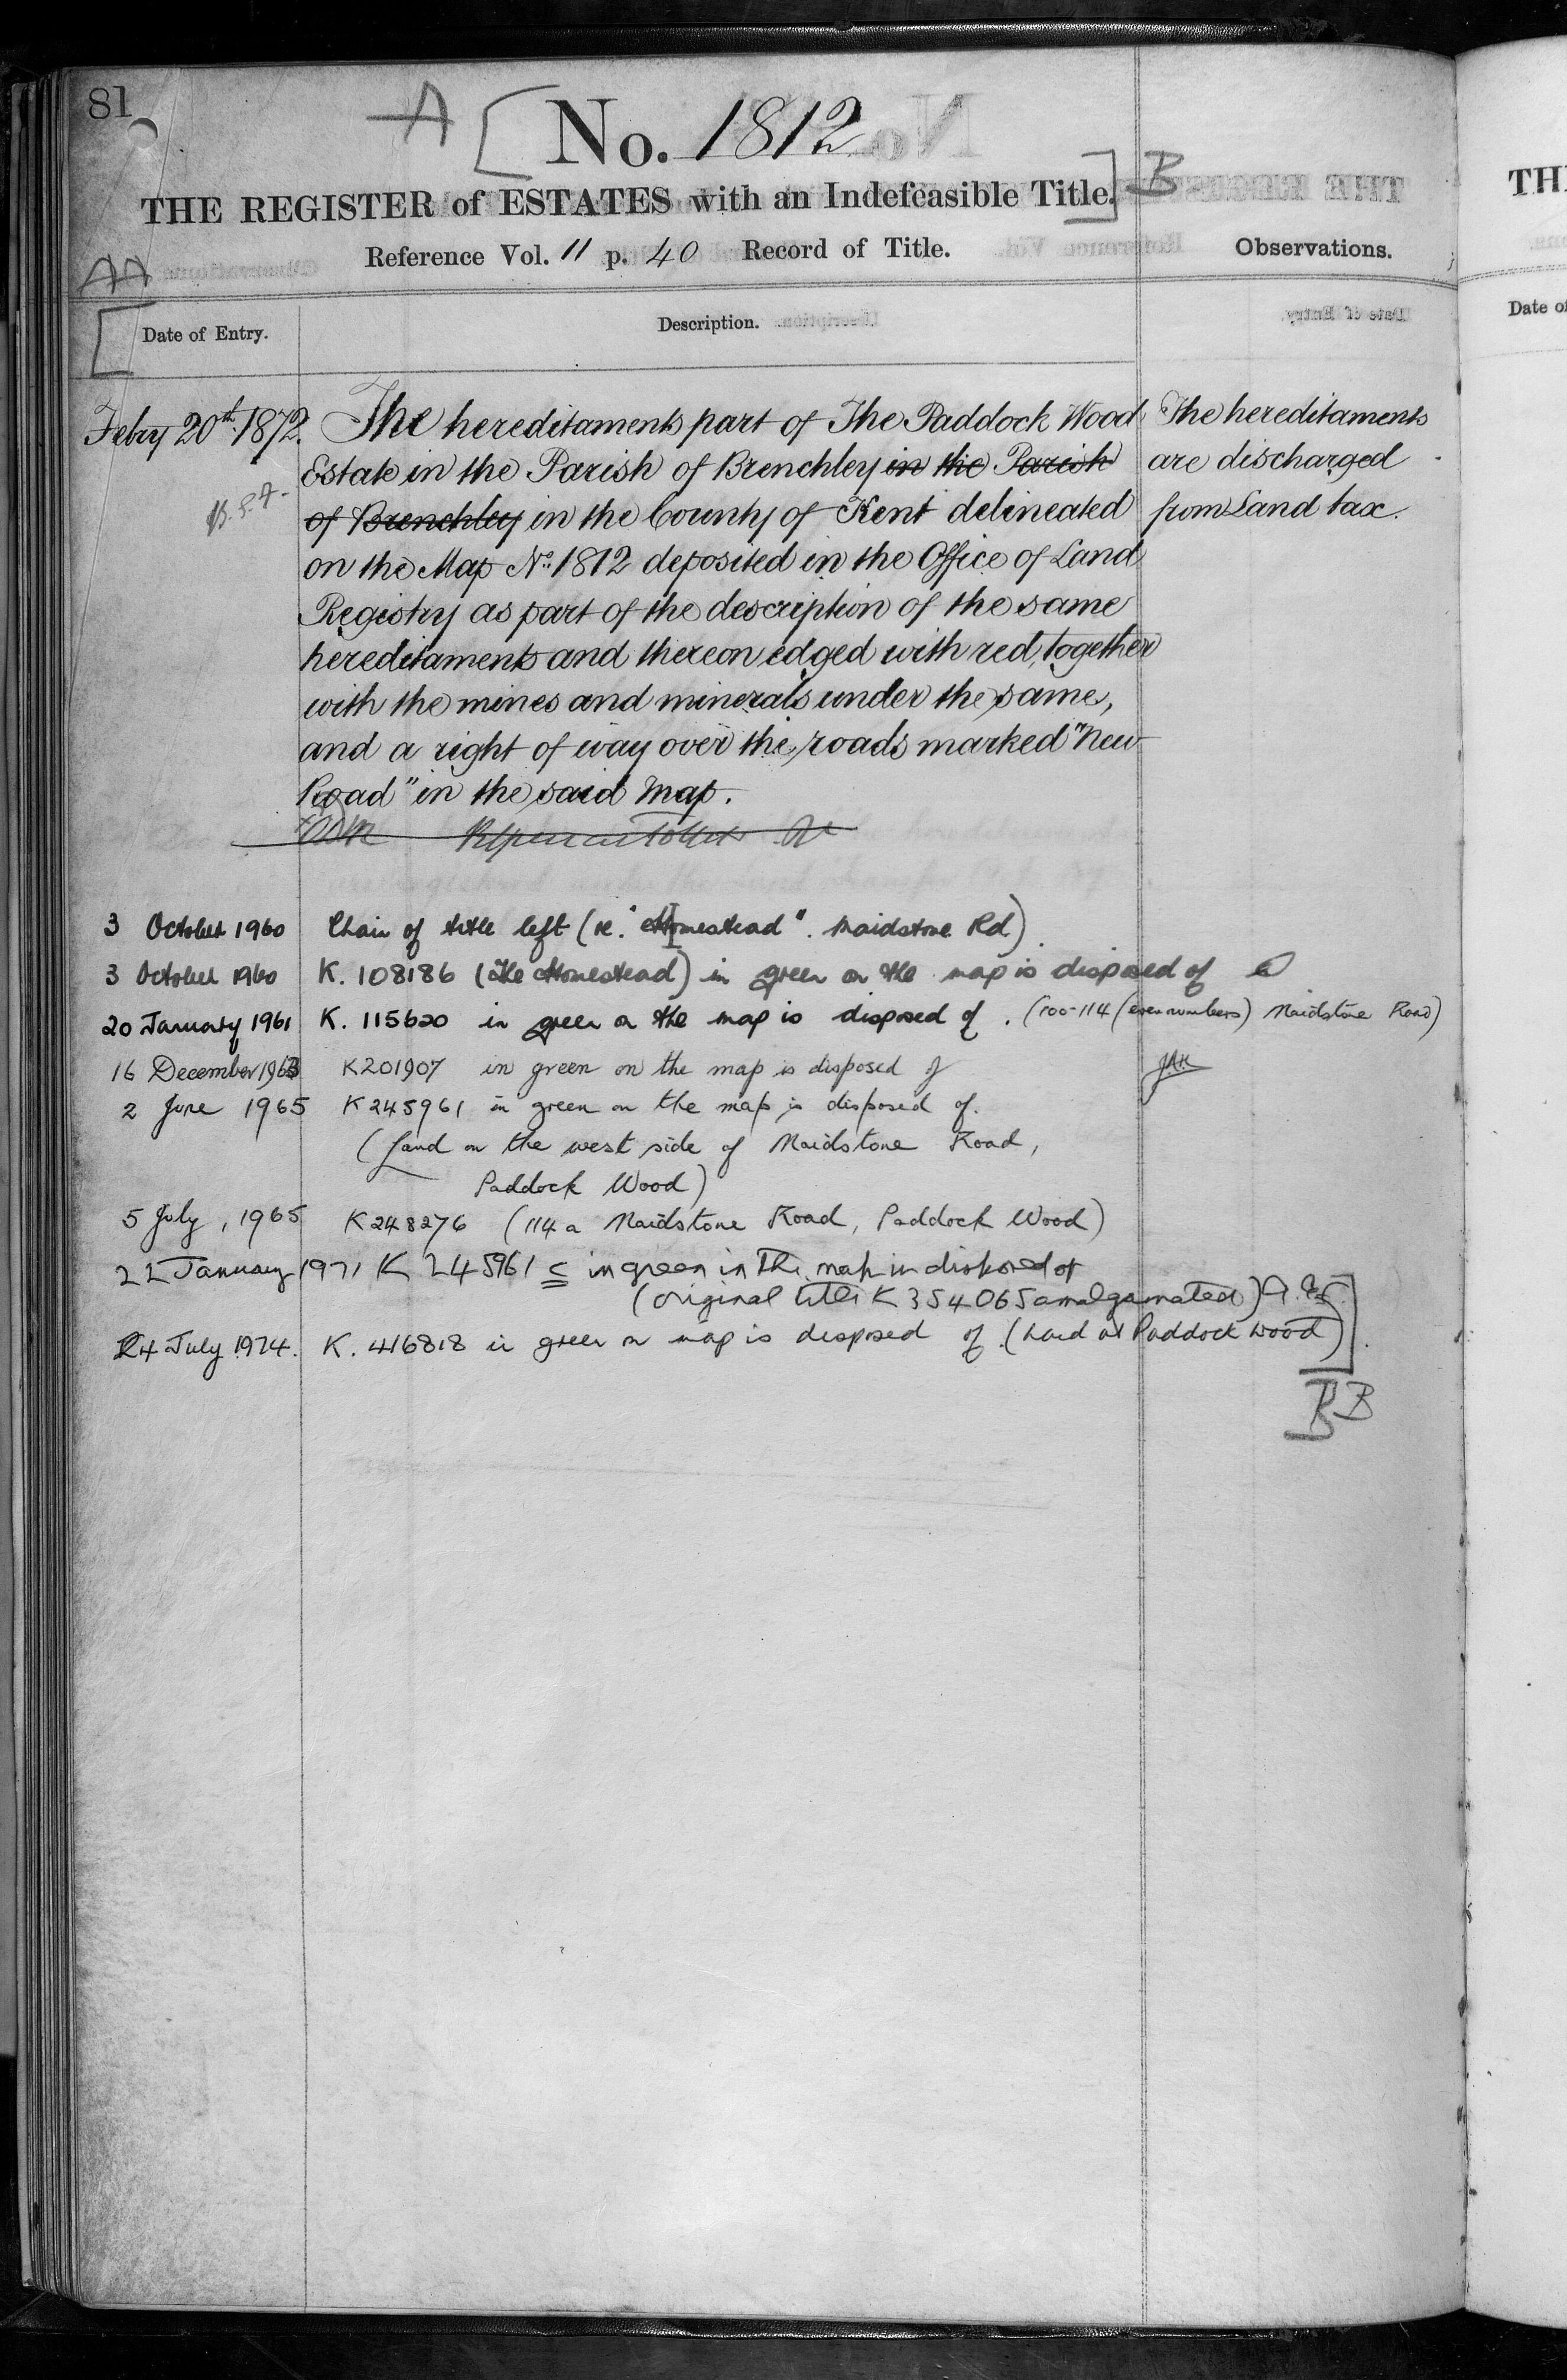 81
A
No. 1812
THE REGISTER of ESTATES with an Indefeasible Title.
B
Reference Vol. 11 p. 40 Record of Title.
Observations.
AA
Date of Entry.
Description.
Febry 20th 1872. The hereditaments part of The Paddock Wood
Estate in the Parish of Brenchley in the Parish
of Brenchley in the County of Kent delineated
on the Map No. 1812 deposited in the Office of Land
Registry as part of the description of the same
hereditaments and thereon edged with red, together
with the mines and minerals under the same,
and a right of way over the roads marked "New
Road" in the said Map.
The hereditaments
are discharged
from Land tax.
3 October 1960 Chain of title left (re. "Homestead". Maidstone Rd)
3 October 1960 K. 108186 (The Homestead) in green on the map is disposed of
20 January 1961 K. 115620 in green on the map is disposed of. (100-114 (even numbers) Maidstone Road)
16 December 1963 K201907 in green on the map is disposed of
2 June 1965 K245961 in green on the map is disposed of.
(Land on the west side of Maidstone Road,
Paddock Wood)
5 July, 1965 K248276 (114a Maidstone Road, Paddock Wood)
22 January 1971 K 245961 in green in the map is disposed of
(original title K354065 amalgamated)
24 July 1974. K. 416818 in green on map is disposed of. (Land at Paddock Wood)
BB
TH
Date of